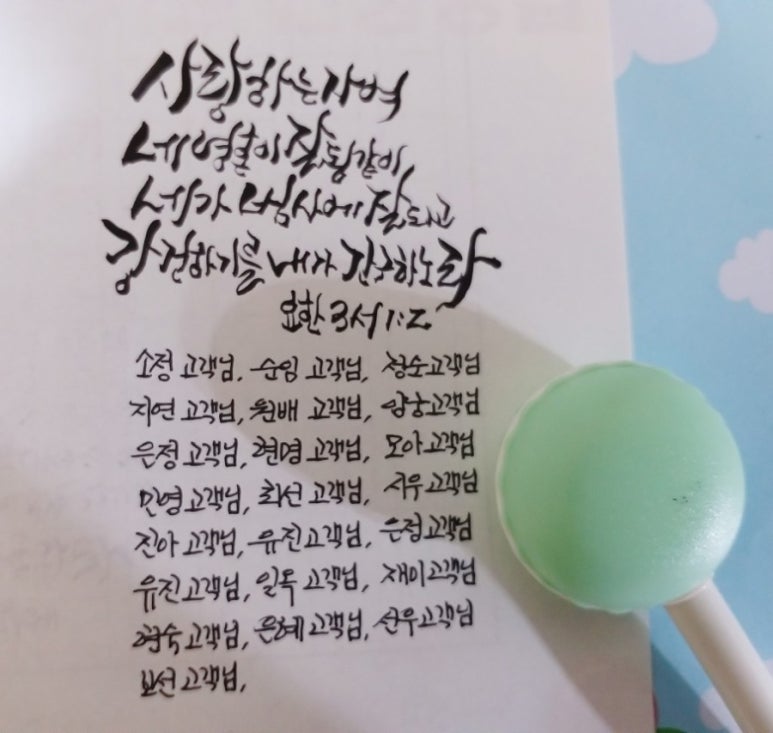 사랑하는 자여
네 영혼이 잘됨같이
네가 범사에 잘되고
강건하기를 내가 간구하노라
요한3서 1:2
소정 고객님, 순임 고객님, 정순고객님
지연 고객님, 원배 고객님, 양궁고객님
은정 고객님, 현명 고객님, 모아고객님
민영고객님, 희선 고객님, 서우고객님
진아 고객님, 유진고객님, 은정고객님
유진고객님, 일목 고객님, 재이고객님
현숙고객님, 은혜고객님, 선우고객님
보선고객님,